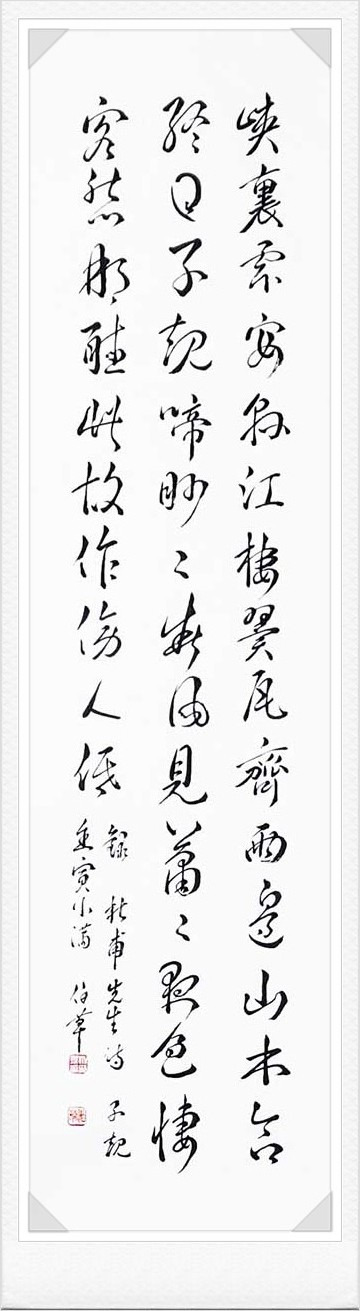 峽裏雲安縣江樓翼瓦齊兩邊山木合
終日子規啼眇〻春風見蕭〻夜色悽
客愁那聽此故作傍人低
錄 杜甫先生詩 子規
壬寅小滿